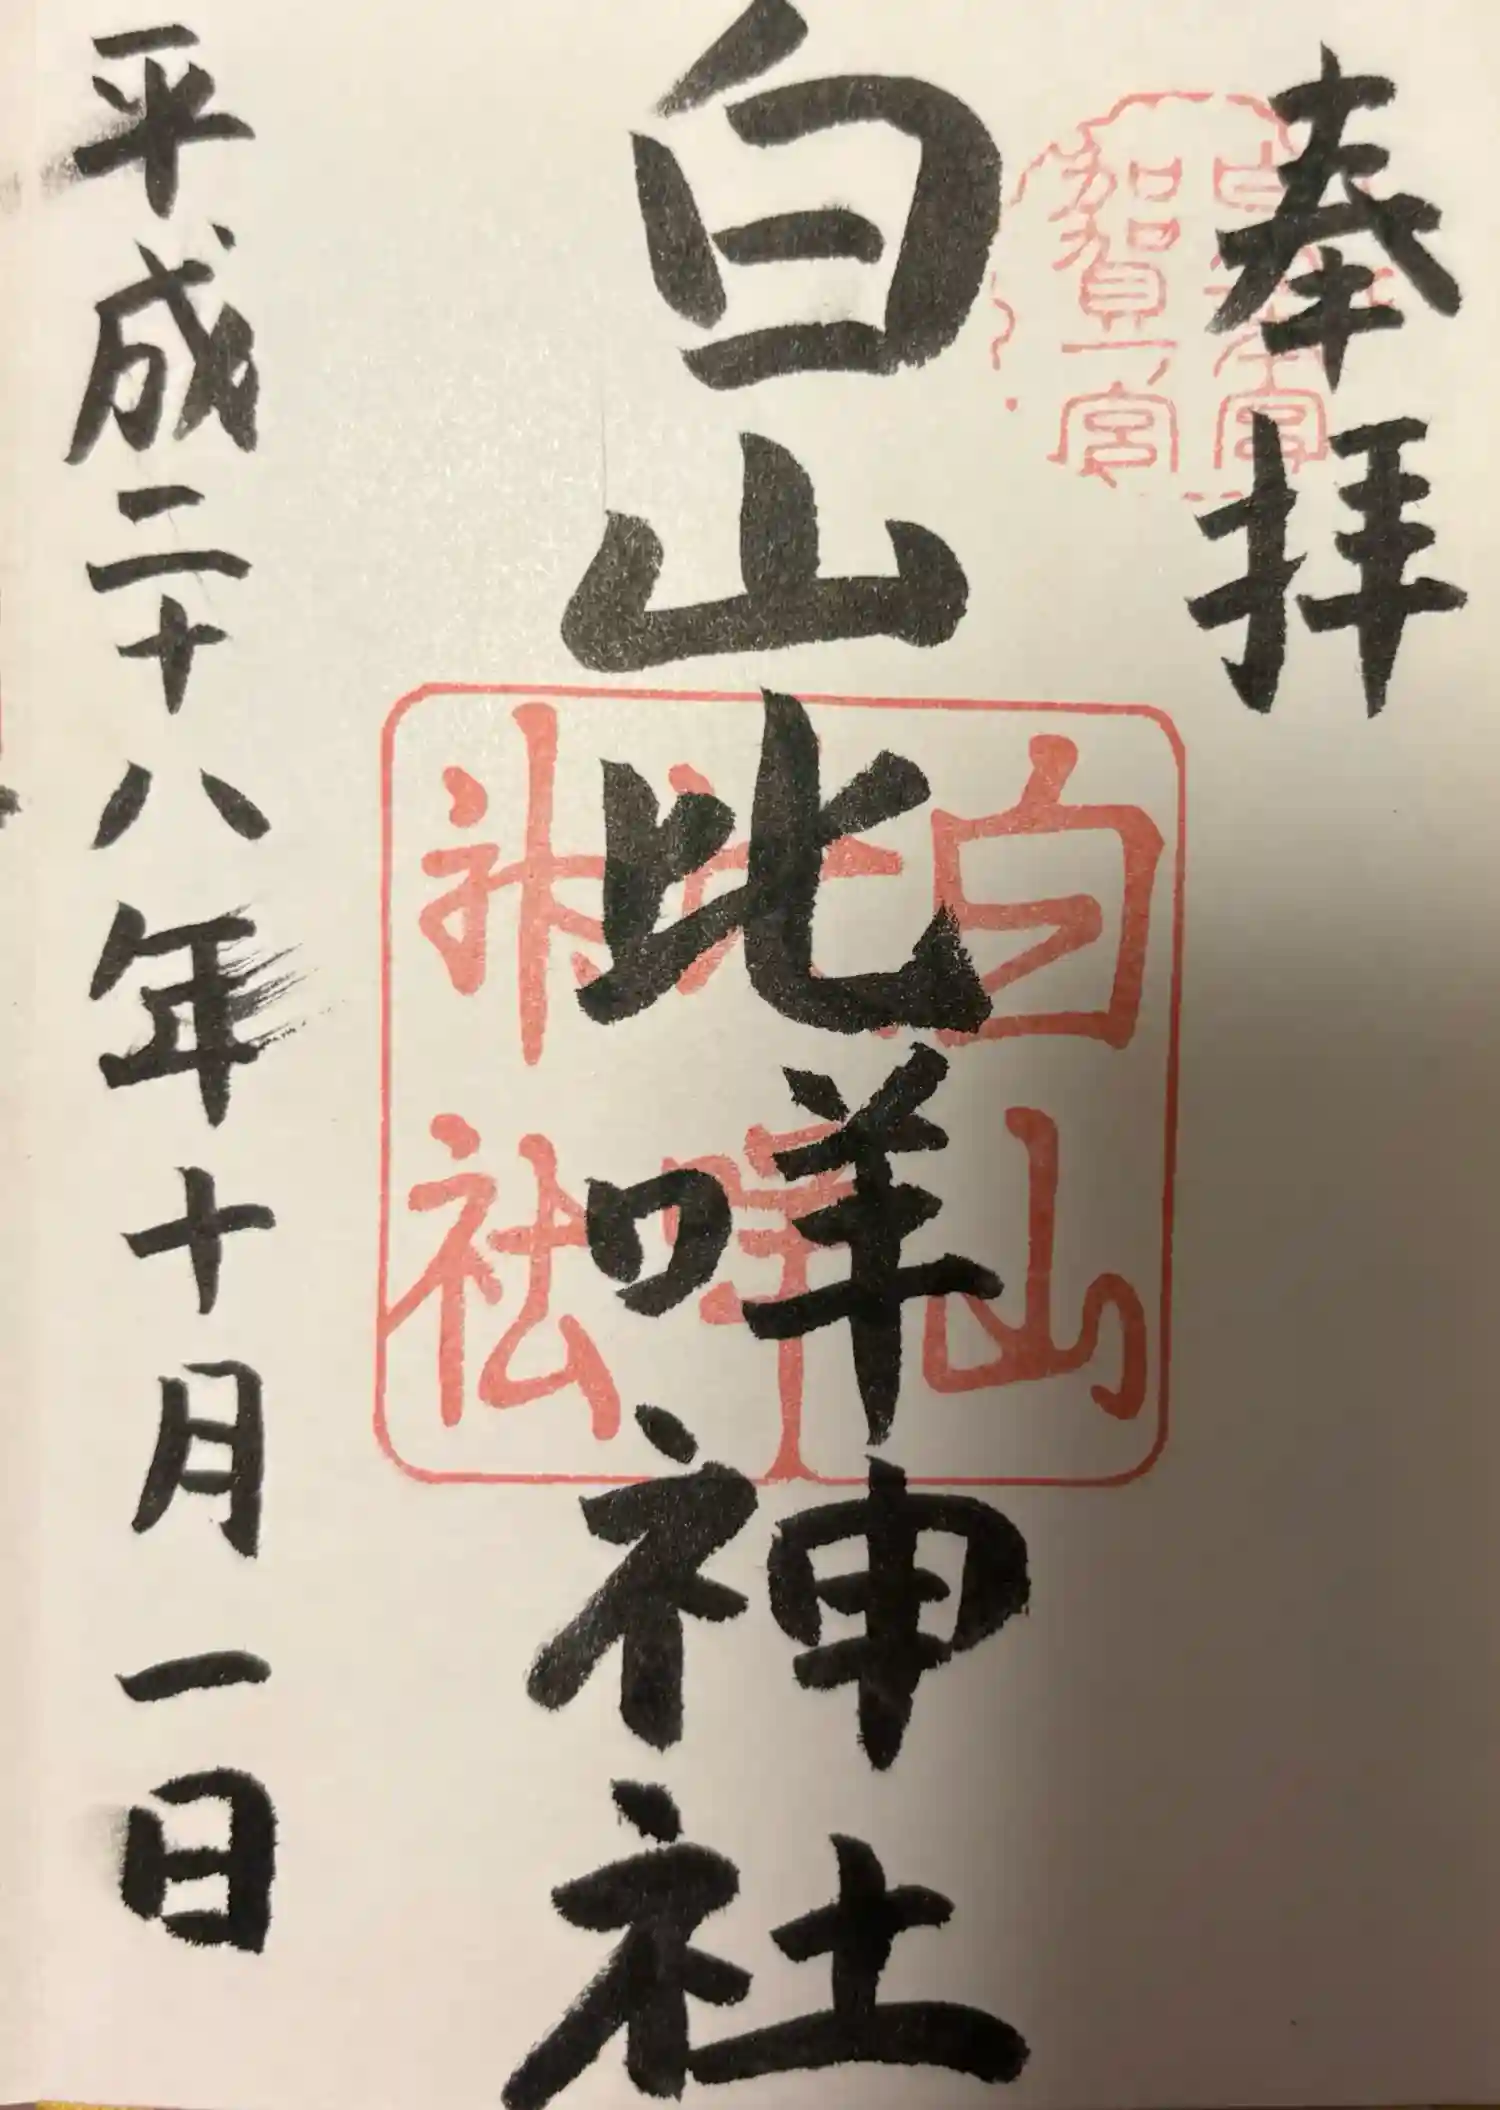 奉拝
加賀一宮
白山比咩神社
白山
比咩
神社
平成二十八年十月一日